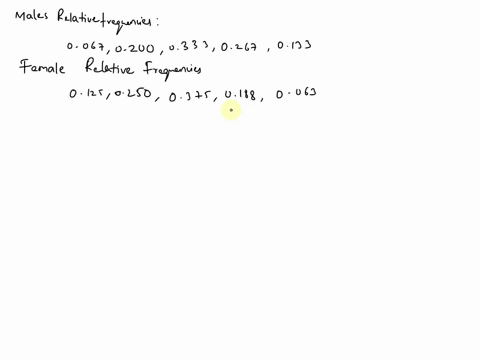 Males Relative frequencies:
0.067, 0.200, 0.333, 0.267, 0.133
Famale Relative Frequencies
0.125, 0.250, 0.375, 0.188, 0.063